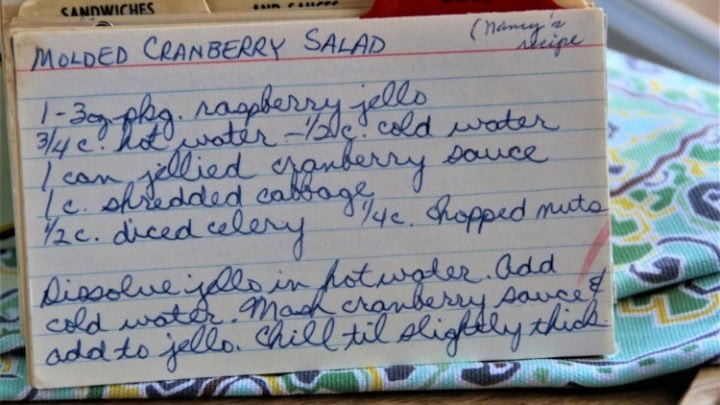 SANDWICHES
AND SAUCES
MOLDED CRANBERRY SALAD
(Nancy's recipe
1-3oz pkg. raspberry jello
3/4 c. hot water - 1/2 c. cold water
1 can jellied cranberry sauce
1 c. shredded cabbage
1/2 c. diced celery 1/4 c. chopped nuts
Dissolve jello in hot water. Add
cold water. Mash cranberry sauce &
add to jello. Chill til slightly thick.